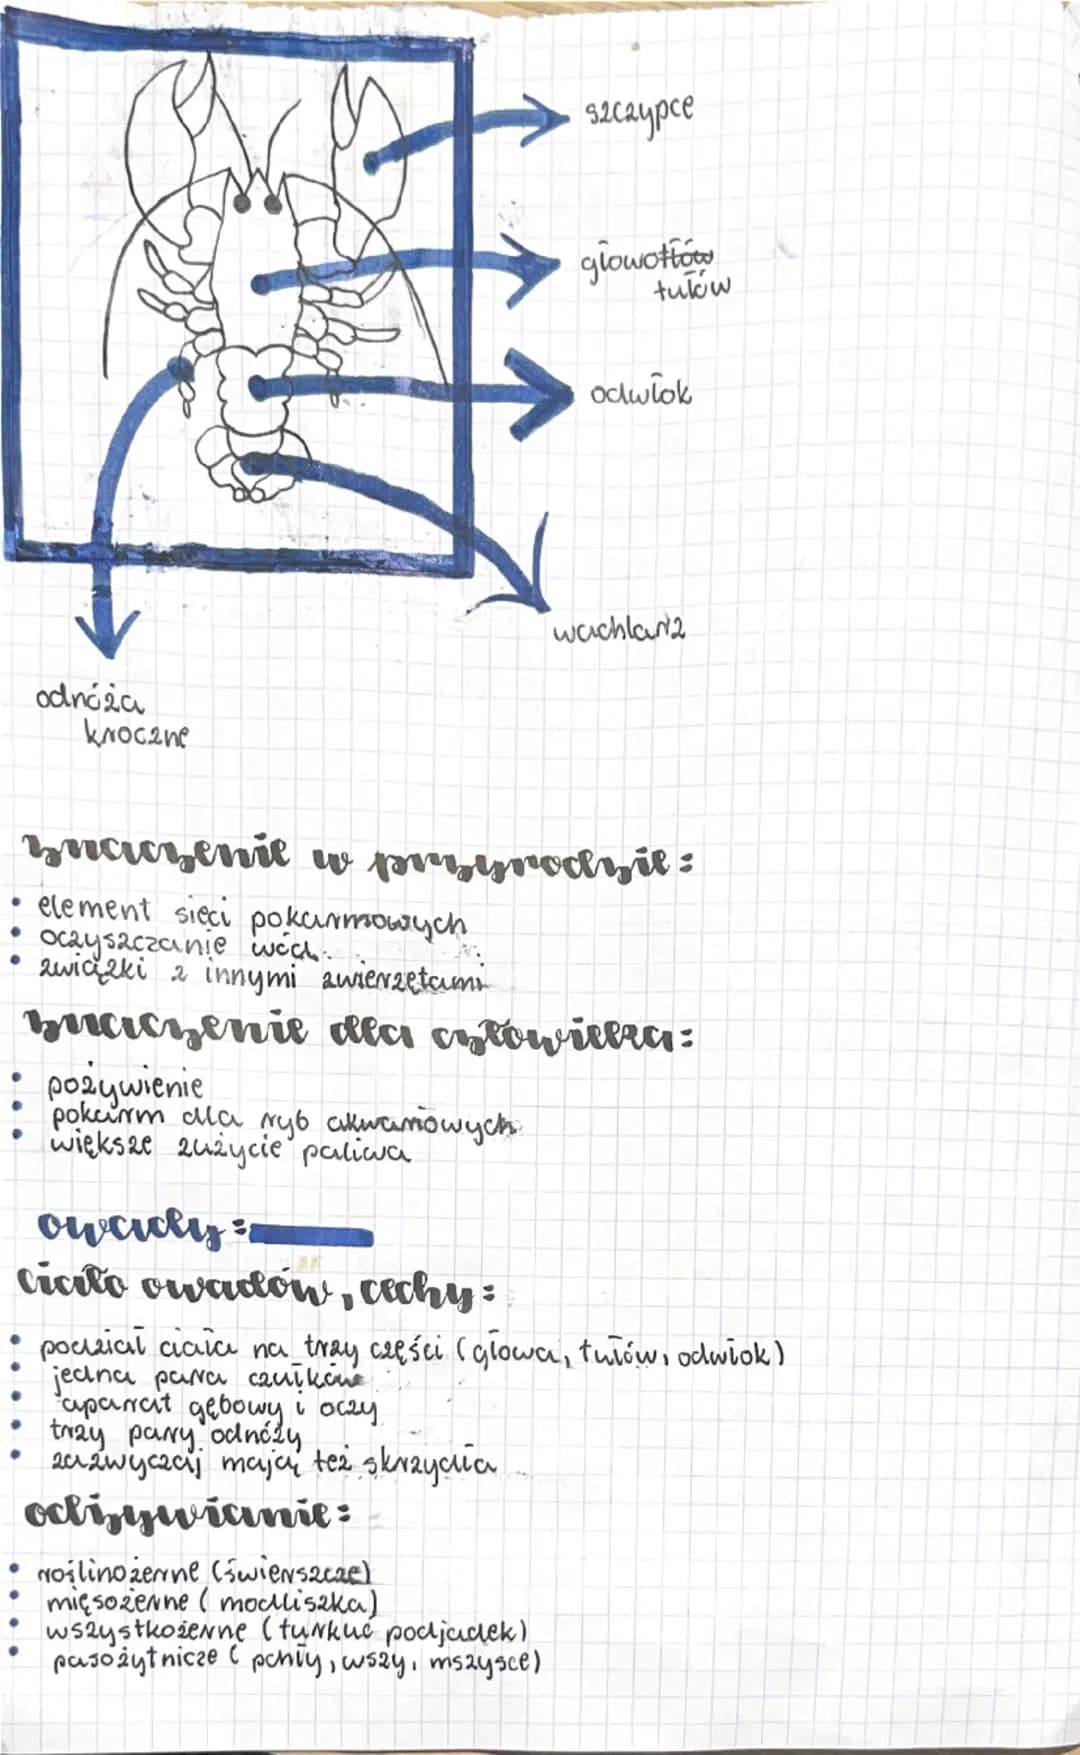 szczypce
głowotłów
tułów
odwłok
wachlarz
odnóża
kroczne
znaczenie w przyrodzie:
• element sieci pokarmowych
• oczyszczanie wód
• związki z innymi zwierzętami
znaczenie dla człowieka:
• pożywienie
• pokarm dla ryb akwariowych
• większe zużycie paliwa
owady:
ciało owadów, cechy:
• podział ciała na trzy części (głowa, tułów, odwłok)
• jedna para czułków
• aparat gębowy i oczy
• trzy pary odnóży
• zazwyczaj mają też skrzydła
odżywianie:
• roślinożerne (świerszcze)
• mięsożerne (modliszka)
• wszystkożerne (turkuć podjadek)
• pasożytnicze (pchły, wszy, mszysce)